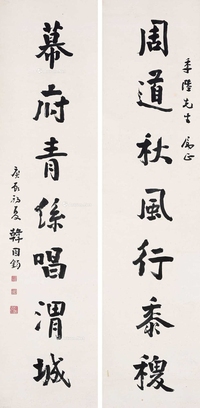 季陸先生屬正
周道秋風行黍稷
幕府青係唱渭城
庚辰初夏 韓國鈞